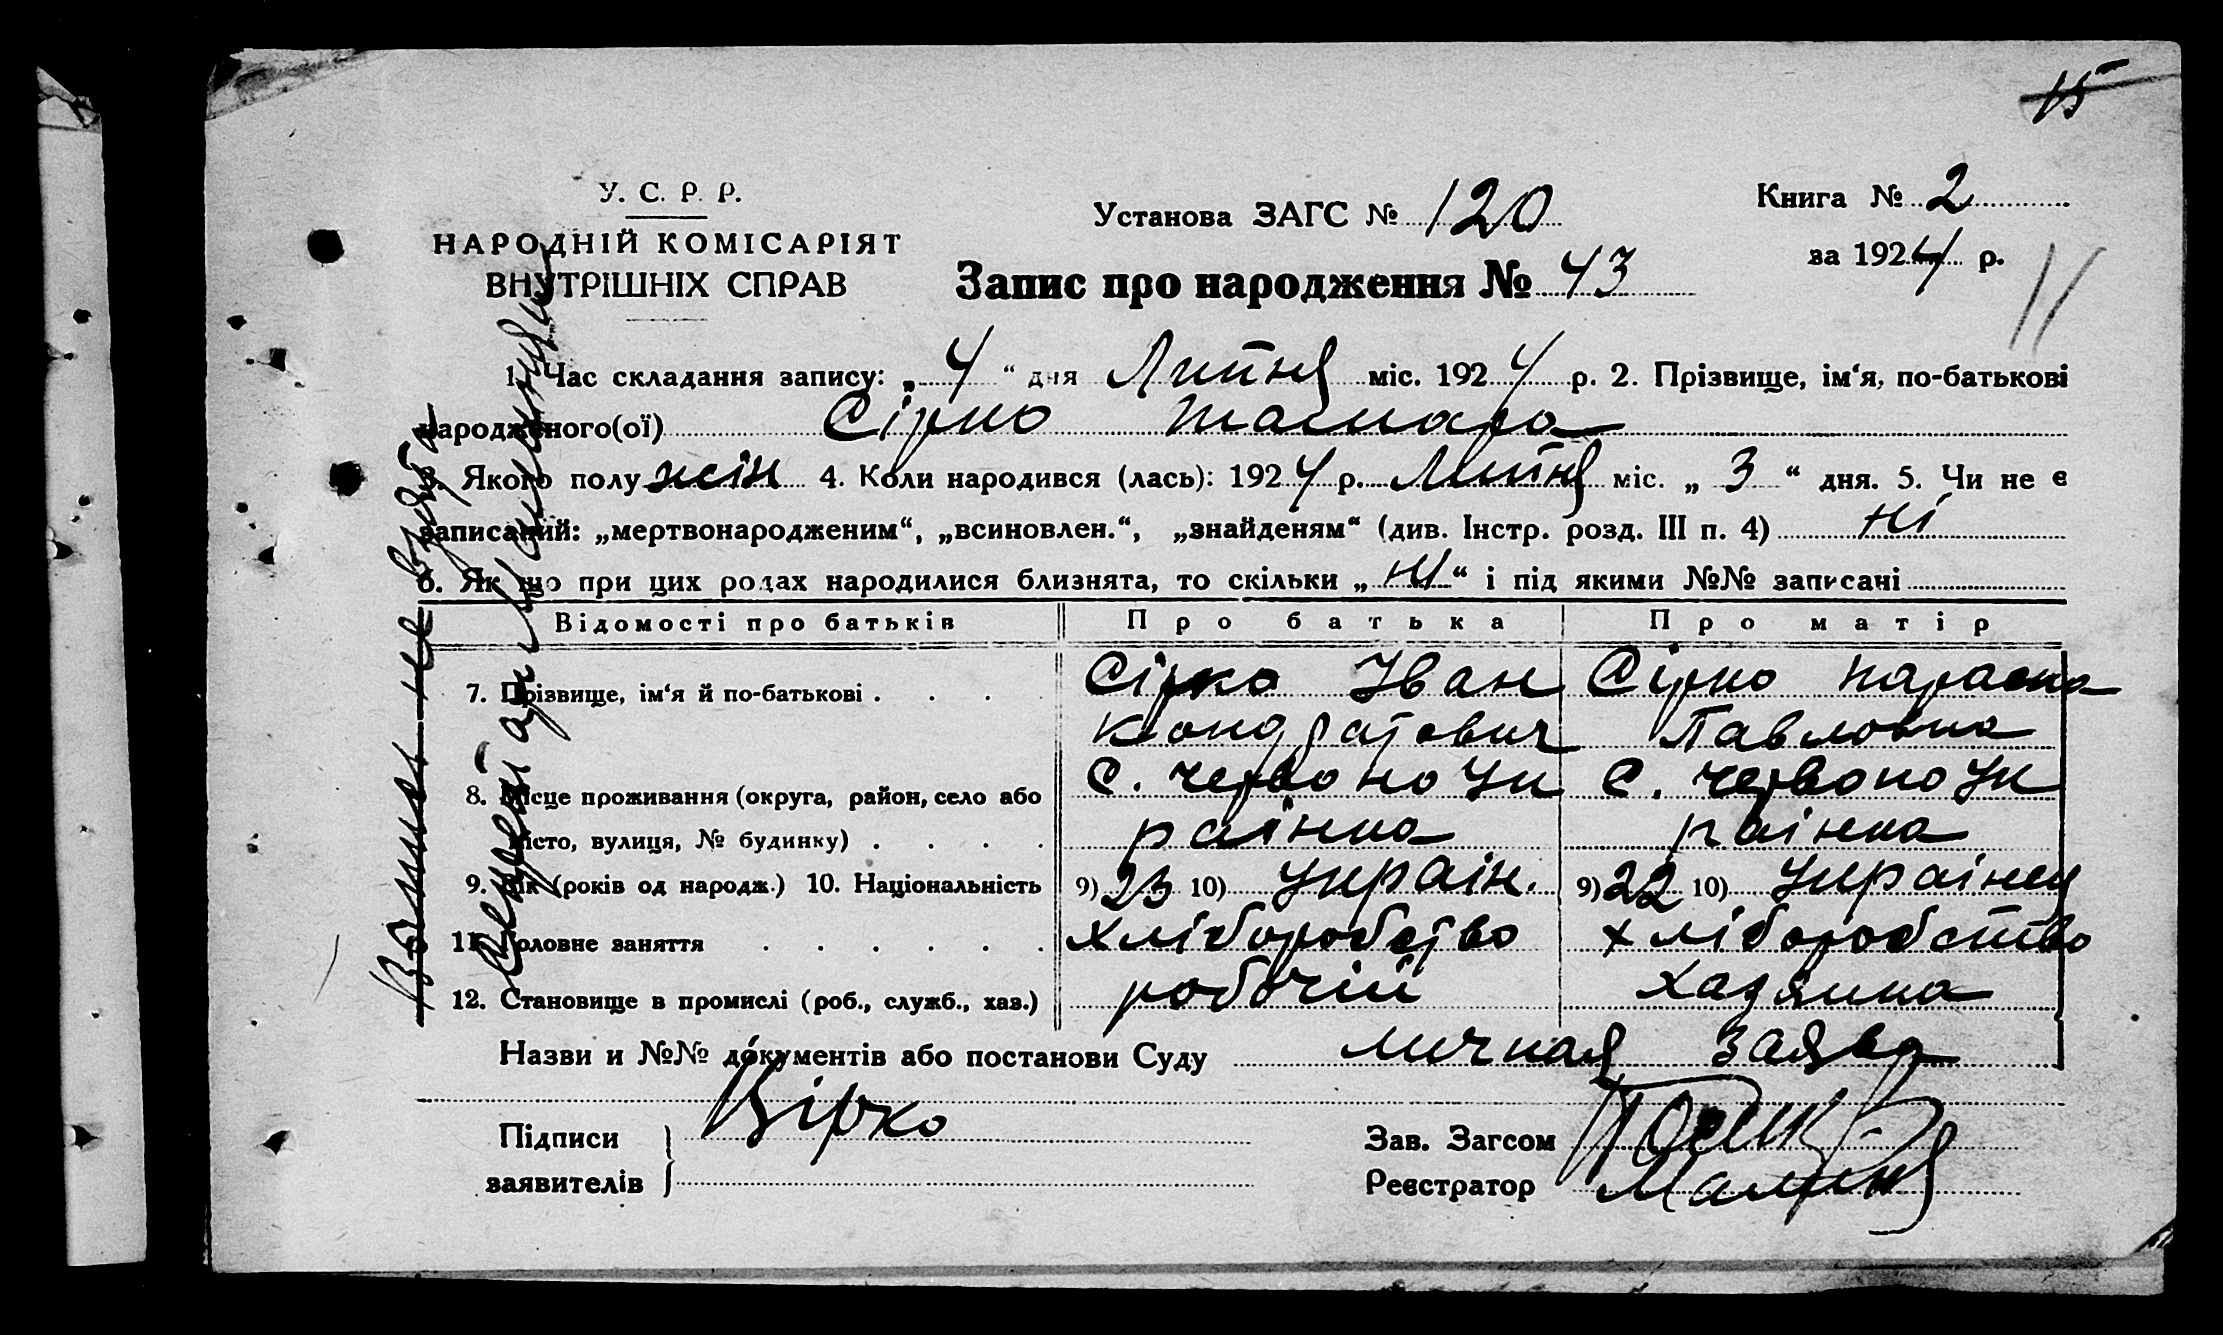 15
У. С. Р. Р.
НАРОДНІЙ КОМІСАРІЯТ
ВНУТРІШНІХ СПРАВ
Установа ЗАГС № 120
Книга № 2
за 1924 р.
11
Запис про народження № 43
1. Час складання запису: „ 4 “ дня Липня міс. 1924 р. 2. Прізвище, ім‘я, по-батькові
народженого(ої) Сірко Тамара
3. Якого полу жін 4. Коли народився (лась): 1924 р. Липня міс. „ 3 “ дня. 5. Чи не є
записаний: „мертвонародженим“, „всиновлен.“, „знайденям“ (див. Інстр. розд. III п. 4) ні
6. Як що при цих родах народилися близнята, то скільки „ ні “ і під якими №№ записані
Відомості про батьків Про батька Про матір
7. Прізвище, ім‘я й по-батькові . . . . Сірко Іван Сірко Параска
Кондратович Павловна
8. Місце проживання (округа, район, село або С. Червоно Ук С. Червоно Ук
місто, вулиця, № будинку) . . . . раінка раінка
9. Вік (років од народж.) 10. Національність 9) 23 10) Украін. 9) 22 10) Украінец
11. Головне заняття . . . . . . Хліборобство хліборобство
12. Становище в промислі (роб., служб., хаз.) робочій хазяика
Назви и №№ документів або постанови Суду личная заява
Підписи
заявителів
Сірко
Зав. Загсом
Реєстратор